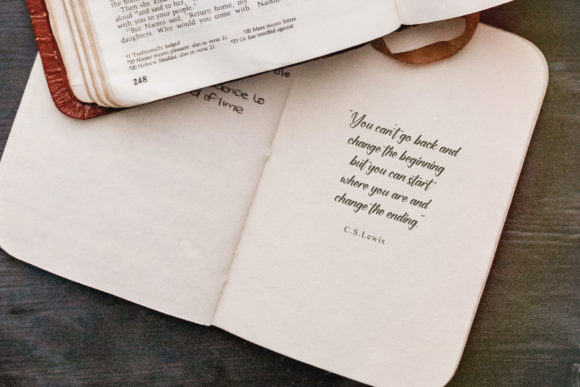 Then she kissed
aloud "and said to her,
with you to your people."
But Naomi said, "Return home, my
daughters. Why would you come with
*1 Traditionally judged
*20 Naomi means pleasant; also in verse 21
*20 Hebrew Shaddai; also in verse 21
*20 Mara means bitter
*21 Or has testified against
248
ole
dance to
d of time
"You can't go back and
change the beginning
but you can start
where you are and
change the ending."
C.S.Lewis